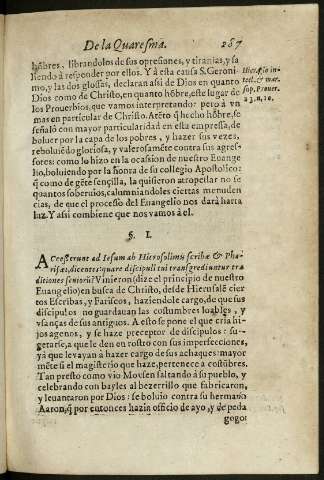 De la Quaresma. 287
hõbres, librandolos de sus opresiones, y tiranias, y sa
liendo à responder por ellos. Y à esta causa S. Geroni-
mo, y las dos glossas, declaran assi de Dios en quanto
Dios como de Christo, en quanto hõbre, este lugar de
los Prouerbios, que vamos interpretando: pero à vn
mas en particular de Christo. Atẽto q̃ hecho hõbre, se
señalò con mayor particularidad en esta empresa, de
boluer por la capa de los pobres, y hazer sus vezes,
reboluiẽdo gloriosa, y valerosamẽte contra sus agres-
sores: como lo hizo en la ocasion de nuestro Euange
lio, boluiendo por la honra de su colegio Apostolico:
q̃ como de gẽte senzilla, la quisieron atropellar no se
quantos soberuios, calumniandoles ciertas menuden
cias, de que el processo del Euangelio nos darà harta
luz. Y assi combiene que nos vamos à el.
Hier. & lo in-
tell. & mar.
sup. Prouer.
23. n. 10.
§. I.
ACcesserunt ad Iesum ab Hierosolimis scribæ & Pha-
risæi, dicentes: quare discipuli tui transgrediuntur tra
ditiones seniorũ? Vinieron (dize el principio de nuestro
Euangelio) en busca de Christo, desde Hierusalẽ cier
tos Escribas, y Fariseos, haziendole cargo, de que sus
discipulos no guardauan las costumbres loables, y
vsanças de sus antiguos. A esto se pone el que cria hi-
jos agenos, y se haze preceptor de discipulos: su-
getarse, a que le den en rostro con sus imperfecciones,
yà que levayan à hazer cargo de sus achaques: mayor
mẽte si el magisterio que haze, pertenece a costũbres.
Tan presto como vio Moysen saltando à su pueblo, y
celebrando con bayles al bezerrillo que fabricaron,
y leuantaron por Dios: se boluio contra su hermano
Aaron, q̃ por entonces hazia officio de ayo, y de peda
gogo